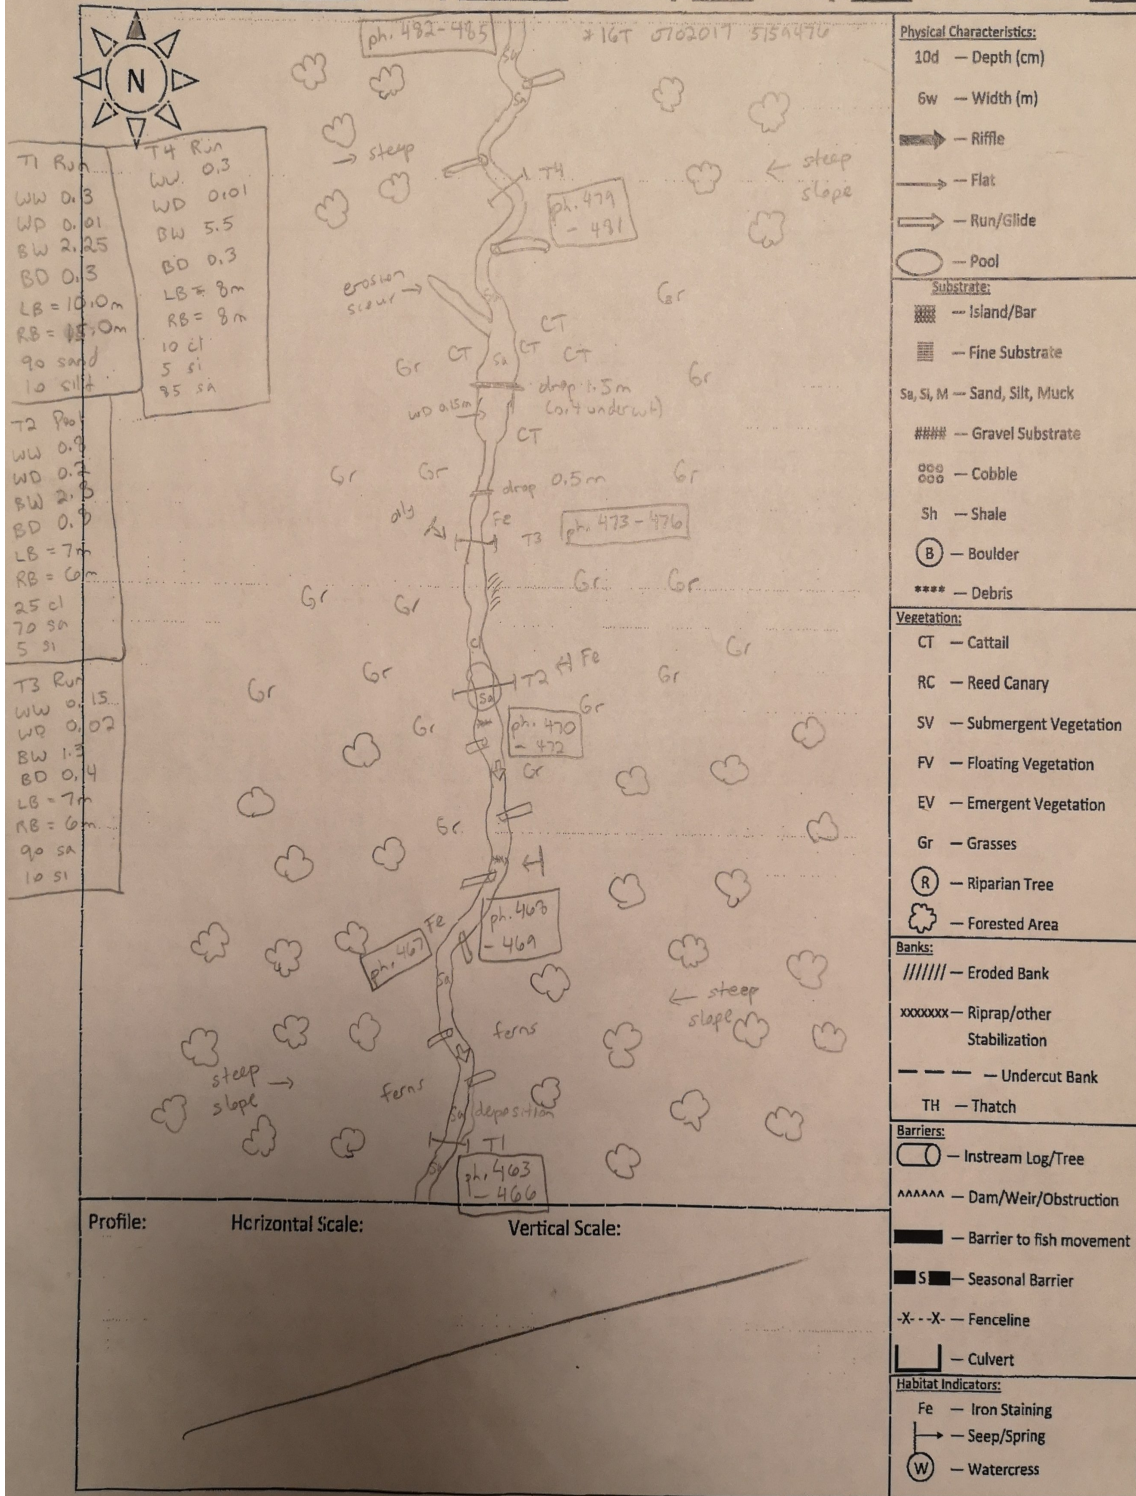 ph. 482-485
* 16T 0702017 5159476
N
T1 Run
WW 0.3
WD 0.01
BW 2.25
BD 0.3
LB = 10.0m
RB = 15.0m
90 sand
10 silt
T4 Run
WW 0.3
WD 0.01
BW 5.5
BD 0.3
LB = 8m
RB = 8m
10 cl
5 si
85 sa
T2 Pool
WW 0.8
WD 0.2
BW 2.8
BD 0.8
LB = 7m
RB = 6m
25 cl
70 sa
5 si
T3 Run
WW 0.15
WD 0.02
BW 1.5
BD 0.4
LB = 7m
RB = 6m
90 sa
10 si
Sa
Sa
→ steep
← steep
slope
T4
ph. 479
- 481
erosion
scour
Gr
CT
CT
CT
CT
Gr
Sa
Gr
drop 1.5m
(0.4 undercut)
WD 0.15m
CT
Gr
Gr
Gr
drop 0.5m
Fe
T3
ph. 473-476
Gr
Gr
Gr
Gr
Gr
Gr
Gr
T2
Fe
Sa
Gr
Gr
Gr
ph. 470
- 472
Gr
Gr
Fe
ph. 467
ph. 468
- 469
Sa
← steep
slope
ferns
steep →
slope
ferns
Sa
deposition
T1
ph. 463
- 466
Profile:
Horizontal Scale:
Vertical Scale:
Physical Characteristics:
10d — Depth (cm)
6w — Width (m)
— Riffle
— Flat
— Run/Glide
— Pool
Substrate:
— Island/Bar
— Fine Substrate
Sa, Si, M — Sand, Silt, Muck
#### — Gravel Substrate
— Cobble
Sh — Shale
B — Boulder
**** — Debris
Vegetation:
CT — Cattail
RC — Reed Canary
SV — Submergent Vegetation
FV — Floating Vegetation
EV — Emergent Vegetation
Gr — Grasses
R — Riparian Tree
— Forested Area
Banks:
/////// — Eroded Bank
xxxxxxx — Riprap/other
Stabilization
— — — — Undercut Bank
TH — Thatch
Barriers:
— Instream Log/Tree
^^^^^^ — Dam/Weir/Obstruction
— Barrier to fish movement
S — Seasonal Barrier
-X---X- — Fenceline
— Culvert
Habitat Indicators:
Fe — Iron Staining
— Seep/Spring
W — Watercress